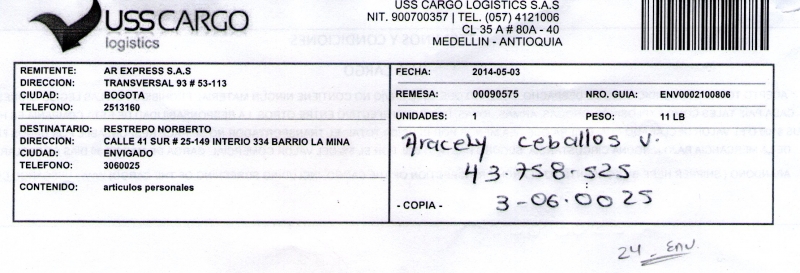 USSCARGO
logistics
USS CARGO LOGISTICS S.A.S
NIT. 900700357 | TEL. (057) 4121006
CL 35 A # 80A - 40
MEDELLIN - ANTIOQUIA
REMITENTE: AR EXPRESS S.A.S
DIRECCION: TRANSVERSAL 93 # 53-113
CIUDAD: BOGOTA
TELEFONO: 2513160
DESTINATARIO: RESTREPO NORBERTO
DIRECCIÓN: CALLE 41 SUR # 25-149 INTERIO 334 BARRIO LA MINA
CIUDAD: ENVIGADO
TELEFONO: 3060025
CONTENIDO: articulos personales
FECHA: 2014-05-03
REMESA: 00090575 NRO. GUIA: ENV0002100806
UNIDADES: 1 PESO: 11 LB
Aracely ceballos v.
43.758.525
- COPIA - 3-06.0025
24_ENV.